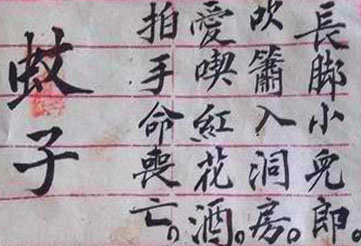 蚊子
長脚小兒郎。
吹簫入洞房。
愛喫紅花酒。
拍手命喪亡。